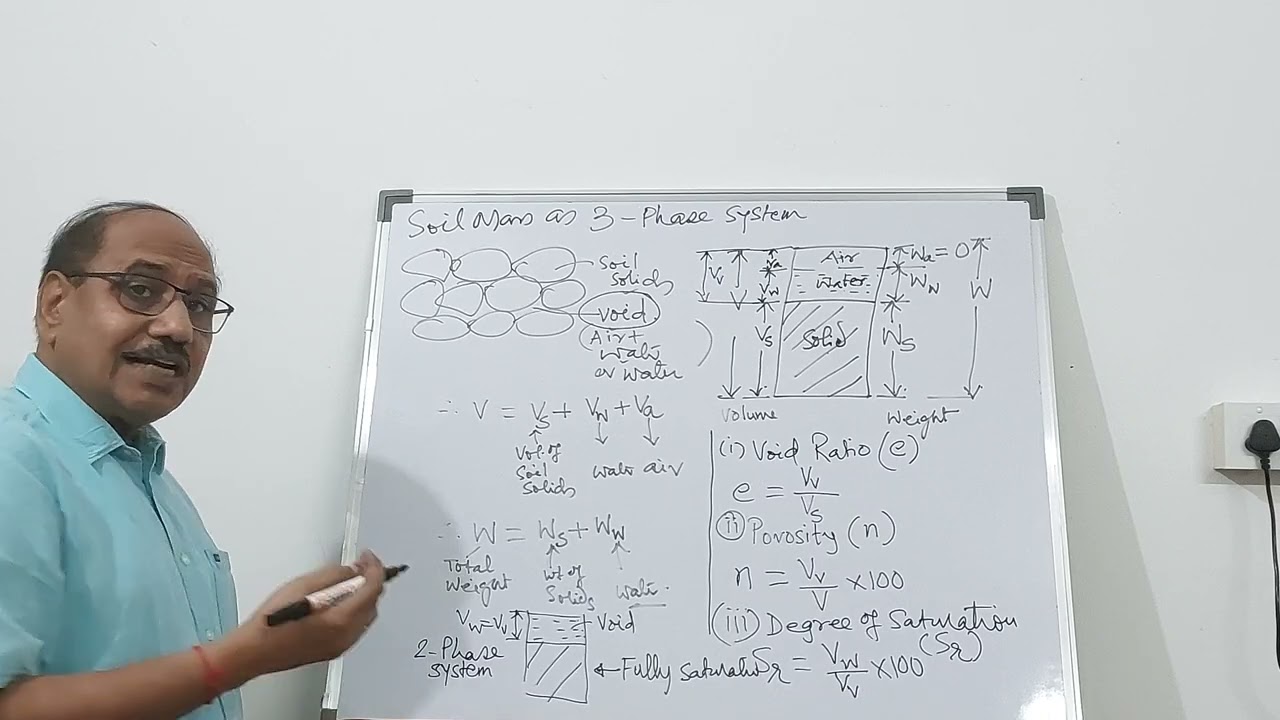 Soil Mass as 3-Phase System
Soil
Solids
Void
Air+
Water
or water
Air
Water
Solid
Va
Vw
Vv
V
Vs
Wa = 0
Ww
Ws
W
Volume
Weight
∴ V = Vs + Vw + Va
Vol. of
Soil
Solids
water
air
∴ W = Ws + Ww
Total
Weight
wt of
Solids
Water
Vw = Vv
Void
2-Phase
System
← Fully saturated
(i) Void Ratio (e)
e = Vv/Vs
(ii) Porosity (n)
n = Vv/V ×100
(iii) Degree of Saturation
(Sr)
Sr = Vw/Vv ×100